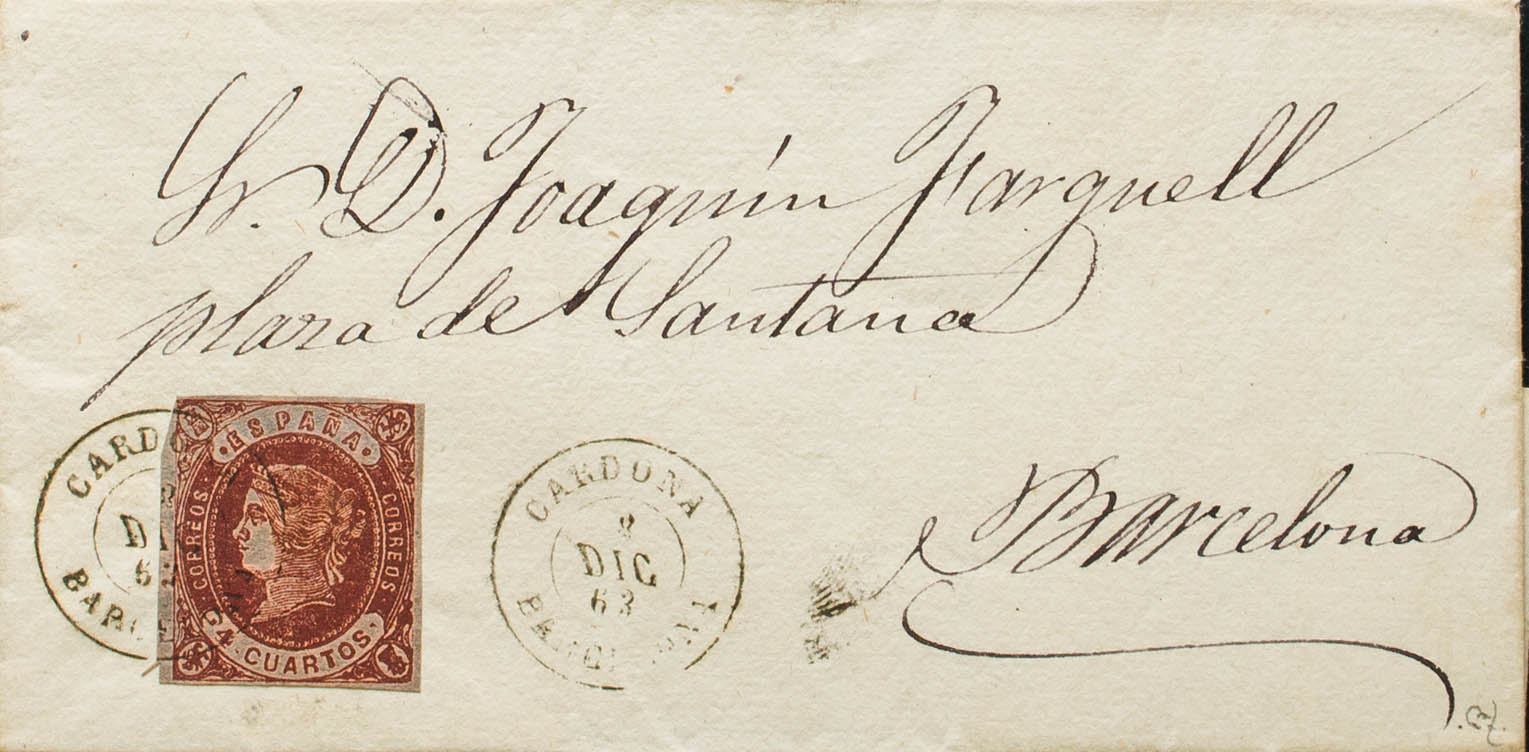 Sr. D. Joaquín Farguell
plaza de Santana
Barcelona
CARDONA
DIC
63
BARCELONA
ESPAÑA
CORREOS
CORREOS
4 CUARTOS
CARDONA
2
DIC
63
BARCELONA